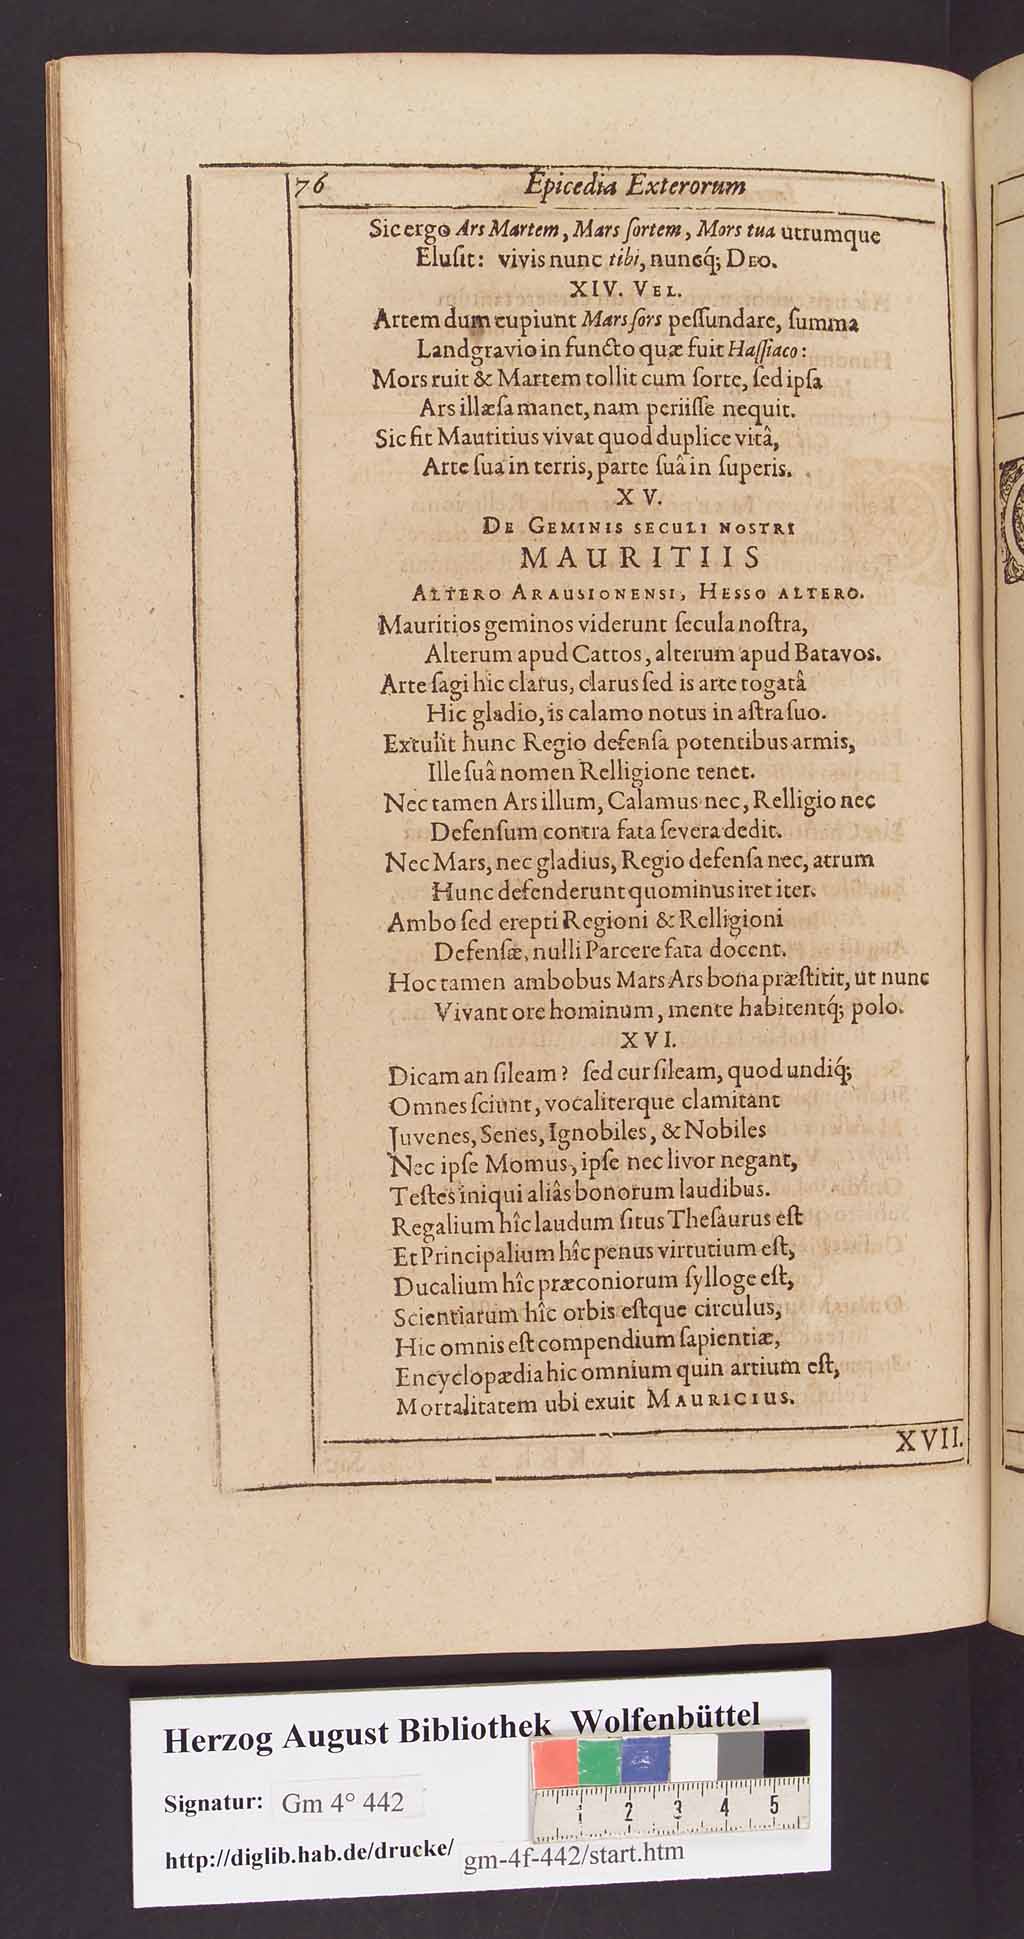 76 Epicedia Exterorum
Sic ergo Ars Martem, Mars ſortem, Mors tua utrumque
Eluſit: vivis nunc tibi, nuncq́; DEO.
XIV. VEL.
Artem dum cupiunt Mars ſors peſſundare, ſumma
Landgravio in functo quæ fuit Haſſiaco:
Mors ruit & Martem tollit cum ſorte, ſed ipſa
Ars illæſa manet, nam periiſſe nequit.
Sic fit Mauritius vivat quod duplice vitâ,
Arte ſua in terris, parte ſuâ in ſuperis.
XV.
DE GEMINIS SECULI NOSTRI
MAURITIIS
ALTERO ARAUSIONENSI, HESSO ALTERO.
Mauritios geminos viderunt ſecula noſtra,
Alterum apud Cattos, alterum apud Batavos.
Arte ſagi hic clarus, clarus ſed is arte togatâ
Hic gladio, is calamo notus in aſtra ſuo.
Extulit hunc Regio defenſa potentibus armis,
Ille ſuâ nomen Relligione tenet.
Nec tamen Ars illum, Calamus nec, Relligio nec
Defenſum contra fata ſevera dedit.
Nec Mars, nec gladius, Regio defenſa nec, atrum
Hunc defenderunt quominus iret iter.
Ambo ſed erepti Regioni & Relligioni
Defenſæ, nulli Parcere fata docent.
Hoc tamen ambobus Mars Ars bona præſtitit, ut nunc
Vivant ore hominum, mente habitentq́; polo.
XVI.
Dicam an ſileam? ſed cur ſileam, quod undiq́;
Omnes ſciunt, vocaliterque clamitant
Juvenes, Senes, Ignobiles, & Nobiles
Nec ipſe Momus, ipſe nec livor negant,
Teſtes iniqui aliâs bonorum laudibus.
Regalium hîc laudum ſitus Theſaurus eſt
Et Principalium hîc penus virtutium eſt,
Ducalium hîc præconiorum ſylloge eſt,
Scientiarum hîc orbis eſtque circulus,
Hic omnis eſt compendium ſapientiæ,
Encyclopædia hic omnium quin artium eſt,
Mortalitatem ubi exuit MAURICIUS.
XVII.
Herzog August Bibliothek Wolfenbüttel
Signatur: Gm 4° 442
http://diglib.hab.de/drucke/ gm-4f-442/start.htm
1 2 3 4 5